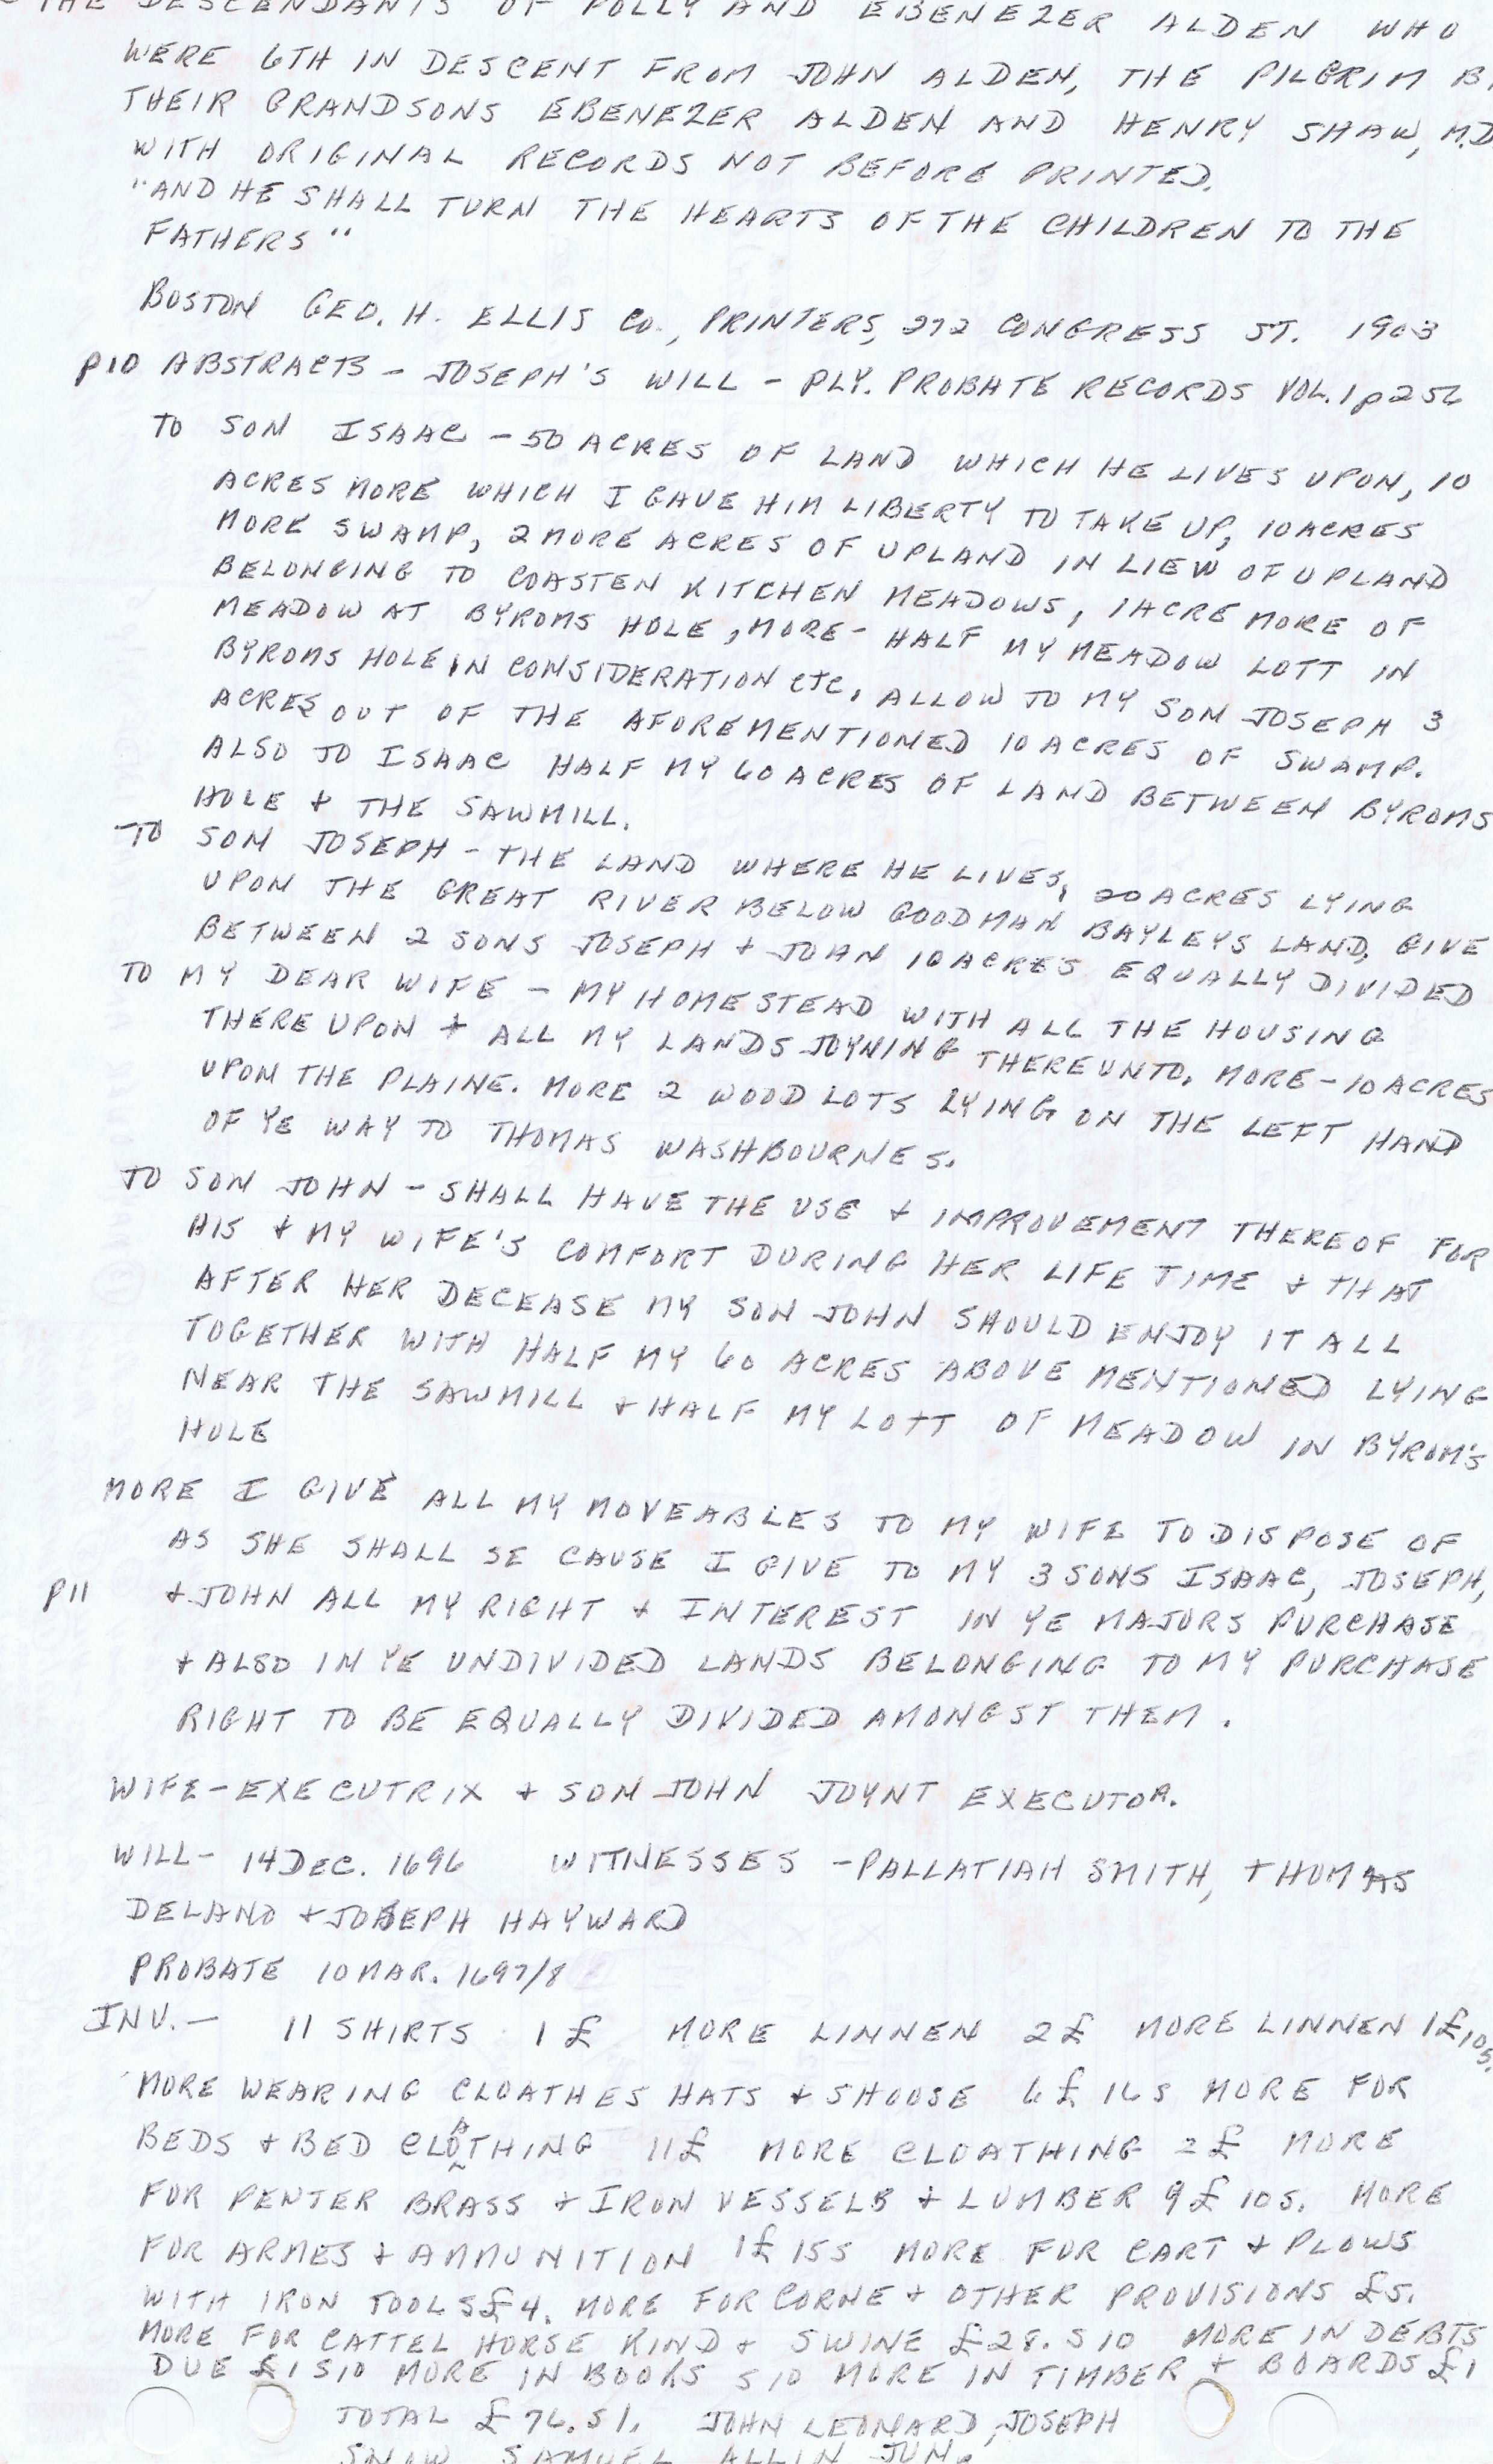 THE DESCENDANTS OF POLLY AND EBENEZER ALDEN WHO
WERE 6TH IN DESCENT FROM JOHN ALDEN, THE PILGRIM
THEIR GRANDSONS EBENEZER ALDEN AND HENRY SHAW, M.D
WITH ORIGINAL RECORDS NOT BEFORE PRINTED.
"AND HE SHALL TURN THE HEARTS OF THE CHILDREN TO THE
FATHERS"
BOSTON GEO. H. ELLIS CO., PRINTERS, 272 CONGRESS ST. 1903
P10 ABSTRACTS - JOSEPH'S WILL - PLY. PROBATE RECORDS VOL. 1 p 256
TO SON ISAAC - 50 ACRES OF LAND WHICH HE LIVES UPON, 10
ACRES MORE WHICH I GAVE HIM LIBERTY TO TAKE UP, 10 ACRES
MORE SWAMP, 2 MORE ACRES OF UPLAND IN LIEW OF UPLAND
BELONGING TO COASTEN KITCHEN MEADOWS, 1 ACRE MORE OF
MEADOW AT BYROMS HOLE, MORE - HALF MY MEADOW LOTT IN
BYROMS HOLE IN CONSIDERATION etc, ALLOW TO MY SON JOSEPH 3
ACRES OUT OF THE AFOREMENTIONED 10 ACRES OF SWAMP.
ALSO TO ISAAC HALF MY 60 ACRES OF LAND BETWEEN BYROMS
HOLE + THE SAWMILL.
TO SON JOSEPH - THE LAND WHERE HE LIVES, 20 ACRES LYING
UPON THE GREAT RIVER BELOW GOODMAN BAYLEYS LAND, GIVE
BETWEEN 2 SONS JOSEPH + JOHN 10 ACRES EQUALLY DIVIDED
TO MY DEAR WIFE - MY HOMESTEAD WITH ALL THE HOUSING
THERE UPON + ALL MY LANDS JOYNING THEREUNTO. MORE - 10 ACRES
UPON THE PLAINE. MORE 2 WOOD LOTS LYING ON THE LEFT HAND
OF YE WAY TO THOMAS WASHBOURNES.
TO SON JOHN - SHALL HAVE THE USE + IMPROVEMENT THEREOF FOR
HIS + MY WIFE'S COMFORT DURING HER LIFE TIME + THAT
AFTER HER DECEASE MY SON JOHN SHOULD ENJOY IT ALL
TOGETHER WITH HALF MY 60 ACRES ABOVE MENTIONED LYING
NEAR THE SAWMILL + HALF MY LOTT OF MEADOW IN BYROM'S
HOLE
MORE I GIVE ALL MY MOVEABLES TO MY WIFE TO DISPOSE OF
AS SHE SHALL SE CAUSE I GIVE TO MY 3 SONS ISAAC, JOSEPH,
P11 + JOHN ALL MY RIGHT + INTEREST IN YE MAJORS PURCHASE
+ ALSO IN YE UNDIVIDED LANDS BELONGING TO MY PURCHASE
RIGHT TO BE EQUALLY DIVIDED AMONGST THEM.
WIFE - EXECUTRIX + SON JOHN JOYNT EXECUTOR.
WILL - 14 DEC. 1696 WITNESSES - PALLATIAH SMITH, THOMAS
DELANO + JOSEPH HAYWARD
PROBATE 10 MAR. 1697/8
INV. - 11 SHIRTS 1£ MORE LINNEN 2£ MORE LINNEN 1£ 10s.
MORE WEARING CLOATHES HATS + SHOOSE 6£ 16S MORE FOR
BEDS + BED CLOATHING 11£ MORE CLOATHING 2£ MORE
FOR PENTER BRASS + IRON VESSELS + LUMBER 9£ 10S. MORE
FOR ARMES + AMMUNITION 1£ 15S MORE FOR CART + PLOWS
WITH IRON TOOLS £4. MORE FOR CORNE + OTHER PROVISIONS £5.
MORE FOR CATTEL HORSE KIND + SWINE £28. S10 MORE IN DEBTS
DUE £1 S10 MORE IN BOOKS S10 MORE IN TIMBER + BOARDS £1
TOTAL £76. S1. JOHN LEONARD, JOSEPH
SNOW SAMUEL ALLIN JUN.